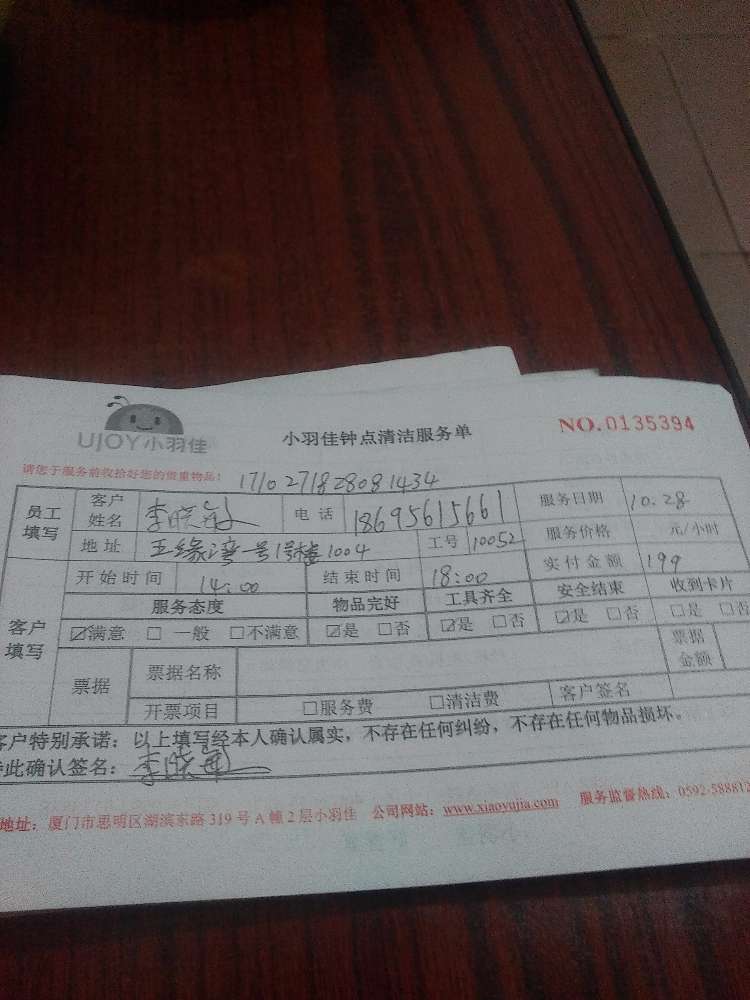 UJOY小羽佳
小羽佳钟点清洁服务单
NO.0135394
请您于服务前收拾好您的贵重物品!
1710271828081434
员工填写 客户姓名 李晓 电话 18695615661 服务日期 10.28
地址 五缘湾一号1号楼1004 工号 10052 服务价格 元/小时
客户填写 开始时间 14:00 结束时间 18:00 实付金额 199
服务态度 物品完好 工具齐全 安全结束 收到卡片
☑满意 □一般 □不满意 ☑是 □否 ☑是 □否 ☑是 □否 □是 □否
票据 票据名称 票据金额
开票项目 □服务费 □清洁费 客户签名
客户特别承诺:以上填写经本人确认属实,不存在任何纠纷,不存在任何物品损坏。
特此确认签名:李晓
地址:厦门市思明区湖滨东路319号A幢2层小羽佳 公司网站:www.xiaoyujia.com 服务监督热线:0592-588812